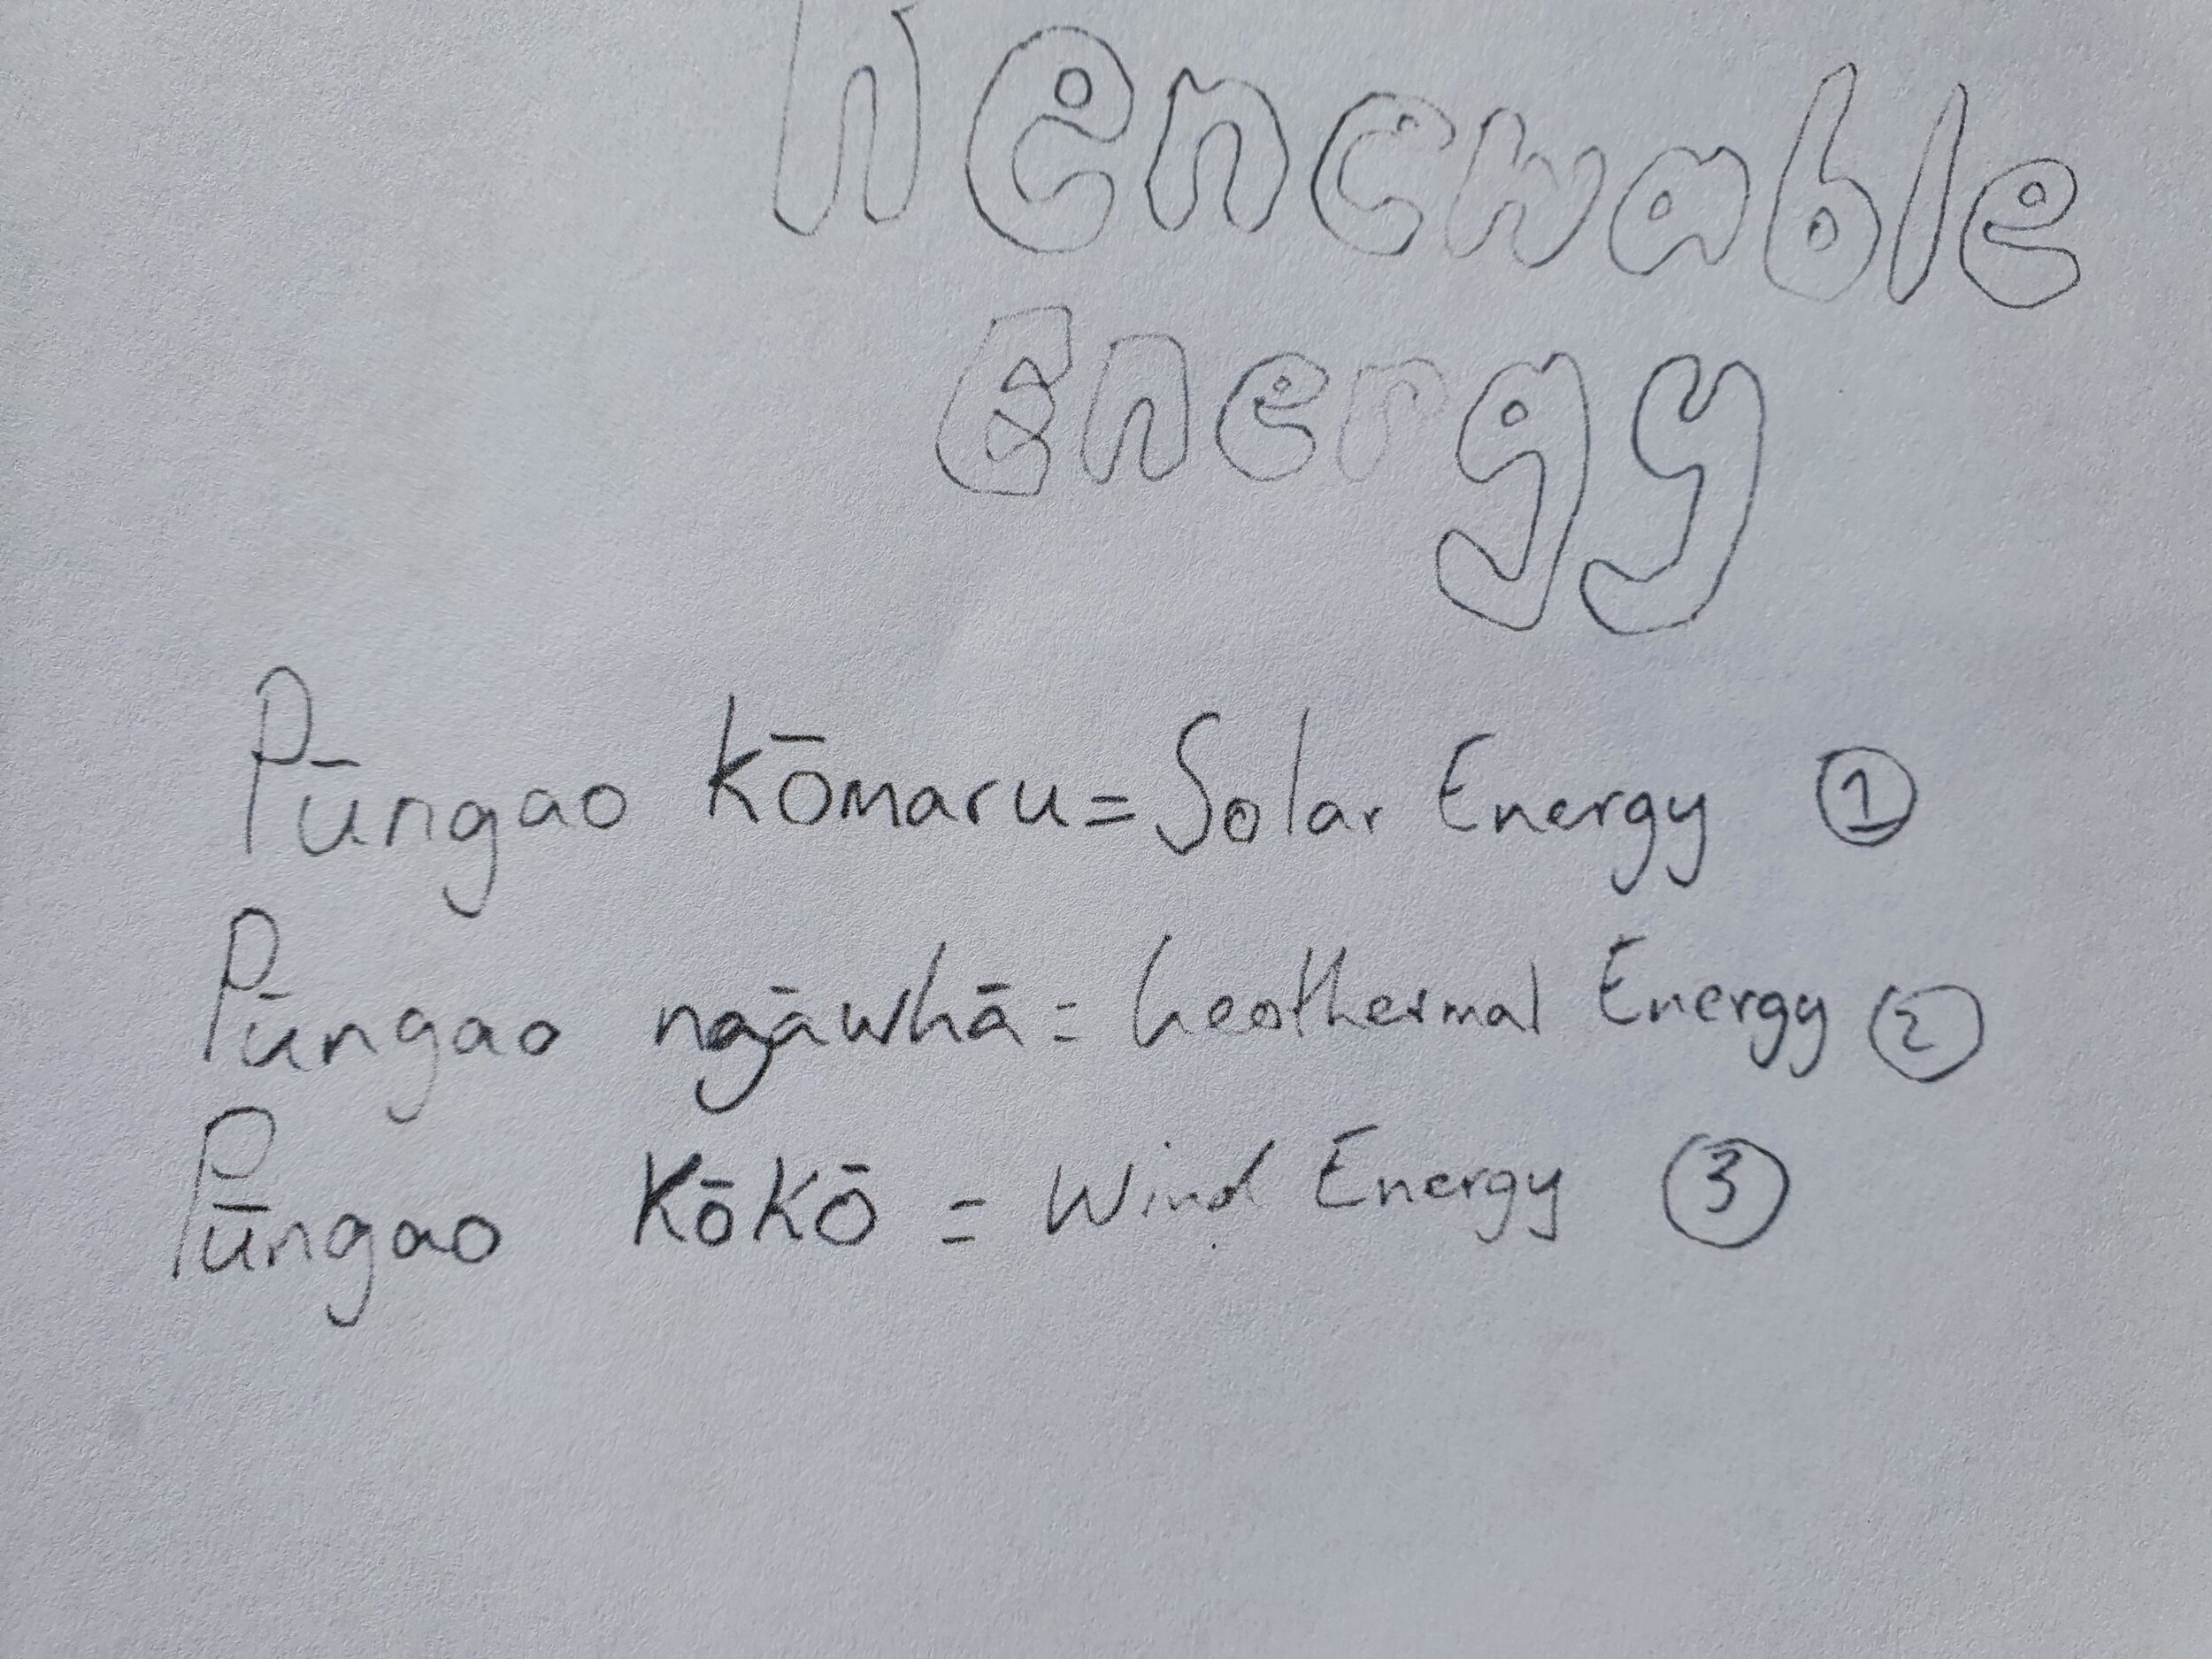 Renewable
Energy
Pūngao Kōmaru = Solar Energy ①
Pūngao ngāwhā = Geothermal Energy ②
Pūngao Kōkō = Wind Energy ③